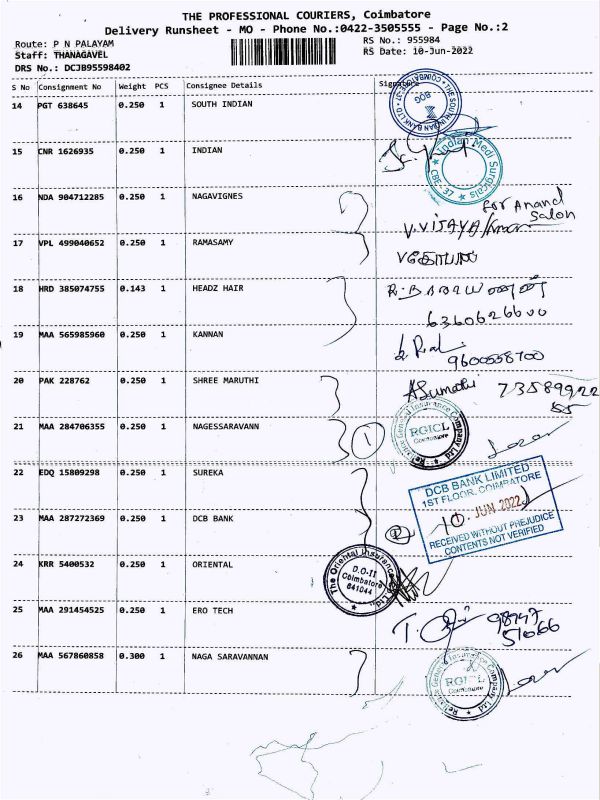 THE PROFESSIONAL COURIERS, Coimbatore
Delivery Runsheet - MO - Phone No.:0422-3505555 - Page No.:2
Route: P N PALAYAM
RS No.: 955984
Staff: THANAGAVEL
RS Date: 10-Jun-2022
DRS No.: DCJB95598402
S No Consignment No Weight PCS Consignee Details Signature
14 PGT 638645 0.250 1 SOUTH INDIAN
THE SOUTH INDIAN BANK LTD. COIMBATORE
BOG
15 CNR 1626935 0.250 1 INDIAN
Indian Medi Surgicals
CBE-37
16 NDA 904712285 0.250 1 NAGAVIGNES
for Anand
Salon
V.VIJAYA
17 VPL 499040652 0.250 1 RAMASAMY
18 HRD 385074755 0.143 1 HEADZ HAIR
6360626600
19 MAA 565985960 0.250 1 KANNAN
9600558700
20 PAK 228762 0.250 1 SHREE MARUTHI
A Sumathi 73589922
55
21 MAA 284706355 0.250 1 NAGESSARAVANN
1
Reliance General Insurance Company Ltd
RGICL
Coimbatore
22 EDQ 15809298 0.250 1 SUREKA
DCB BANK LIMITED
1ST FLOOR, COIMBATORE
10 JUN 2022
RECEIVED WITHOUT PREJUDICE
CONTENTS NOT VERIFIED
23 MAA 287272369 0.250 1 DCB BANK
2
24 KRR 5400532 0.250 1 ORIENTAL
The Oriental Insurance Co. Ltd.
D.O-II
Coimbatore
641044
25 MAA 291454525 0.250 1 ERO TECH
98747
51066
26 MAA 567860858 0.300 1 NAGA SARAVANNAN
Reliance General Insurance Company Ltd
RGICL
Coimbatore